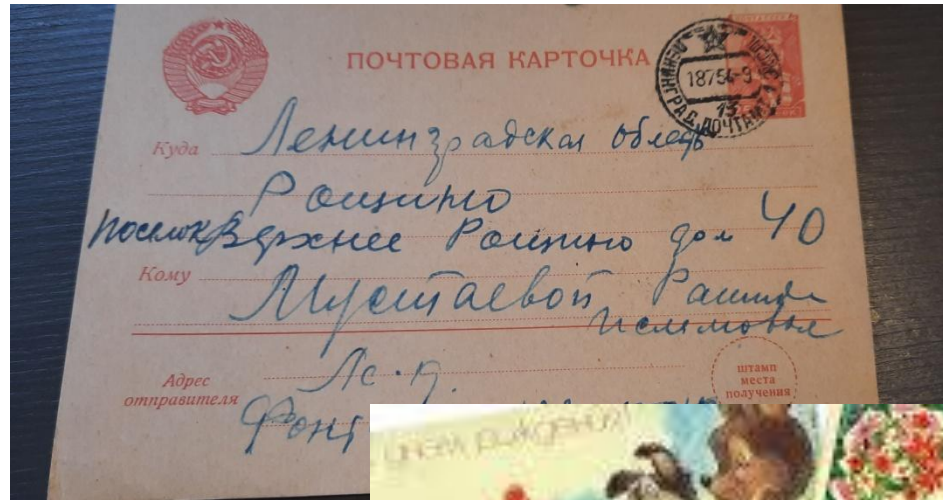 ПОЧТОВАЯ КАРТОЧКА
ЛЕНИНГРАД ПОЧТАМТ
18754-9
13
Куда Ленинградская область
Рощино
поселок Верхнее Рощино дом 40
Кому Мустаевой
Адрес отправителя
штамп
места
получения
днем рождения!